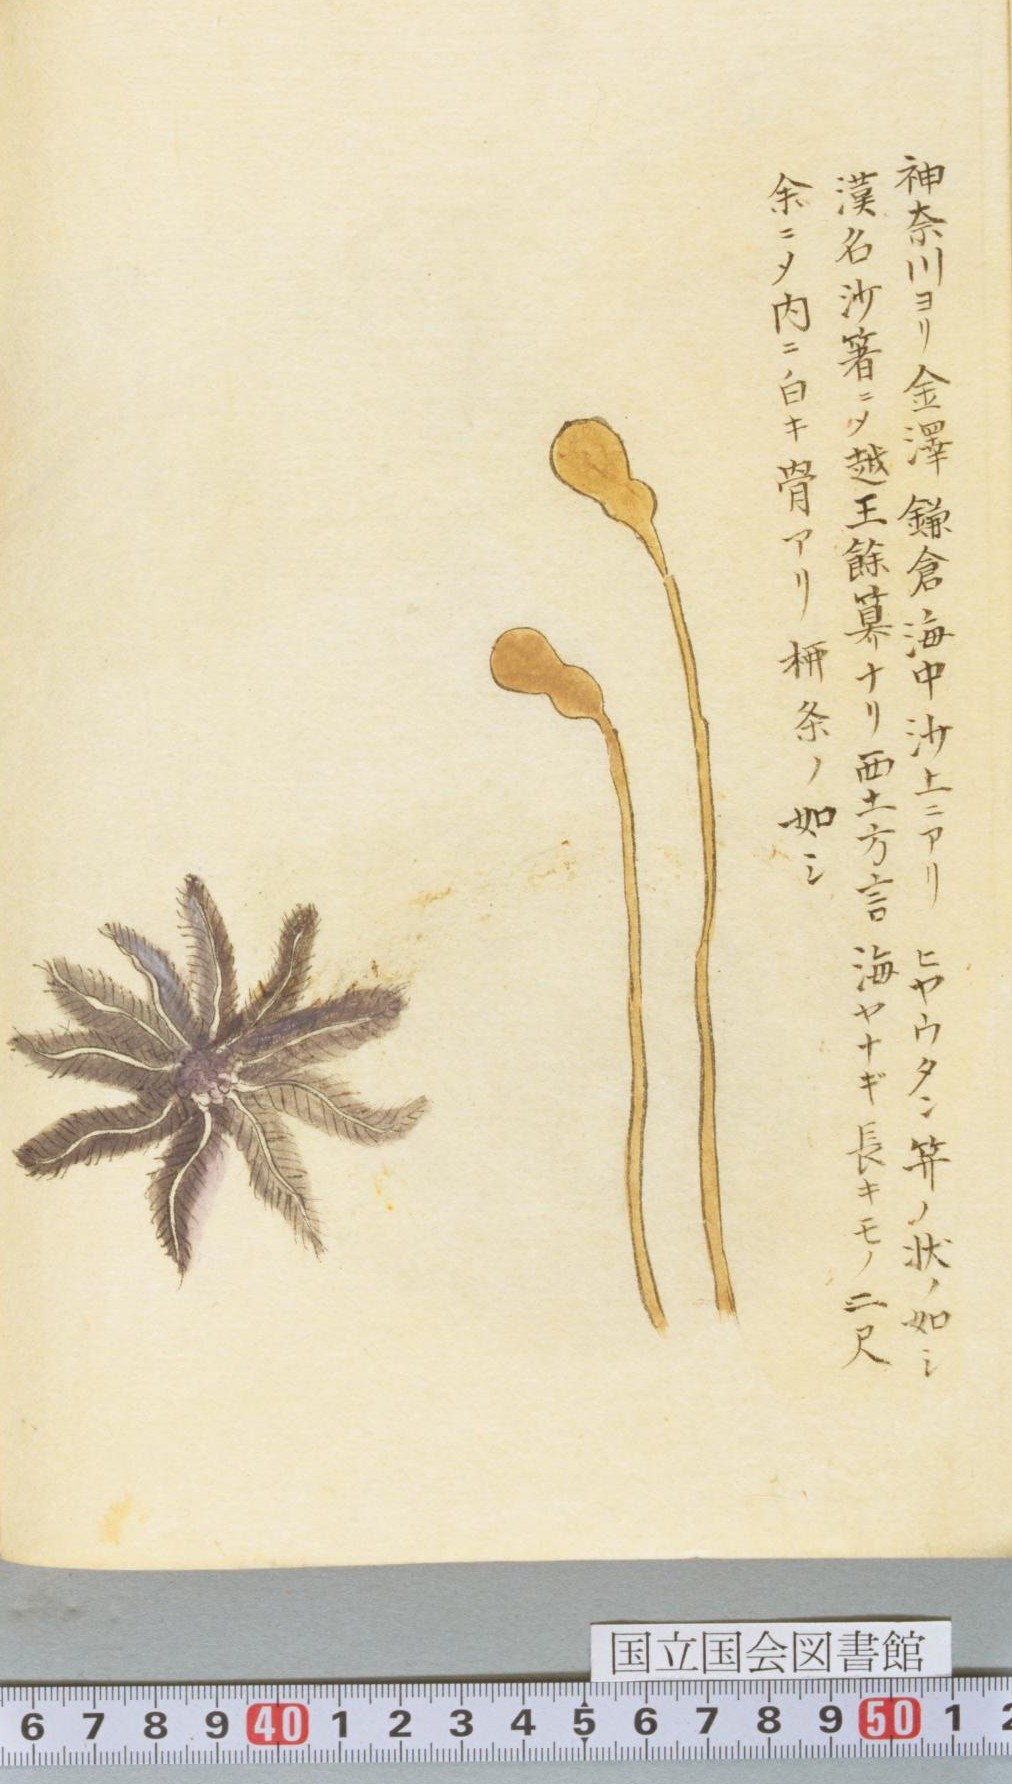 神奈川ヨリ金澤鎌倉海中沙上ニアリ ヒヤウタン笄ノ状ノ如シ
漢名沙箸ニメ越王餘筭ナリ西土方言海ヤナギ長キモノ二尺
余ニメ内ニ白キ骨アリ柳条ノ如シ
国立国会図書館
6 7 8 9 40 1 2 3 4 5 6 7 8 9 50 1 2